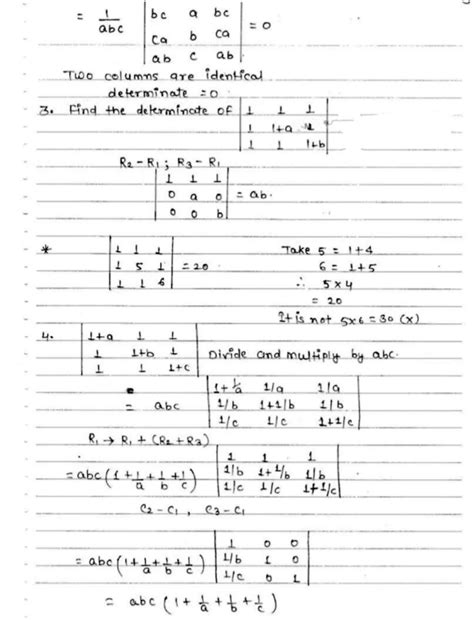 = 1/abc | bc a bc |
| ca b ca | = 0
| ab c ab |
Two columns are identical
determinate = 0.
3. Find the determinate of | 1 1 1 |
| 1 1+a 1 |
| 1 1 1+b |
R2 - R1 ; R3 - R1
| 1 1 1 |
| 0 a 0 | = ab.
| 0 0 b |
* | 1 1 1 | Take 5 = 1+4
| 1 5 1 | = 20 6 = 1+5
| 1 1 6 | ∴ 5x4
= 20
It is not 5x6 = 30 (x)
4. | 1+a 1 1 |
| 1 1+b 1 | Divide and multiply by abc.
| 1 1 1+c |
= abc | 1+1/a 1/a 1/a |
| 1/b 1+1/b 1/b |
| 1/c 1/c 1+1/c |
R1 → R1 + (R2 + R3)
= abc (1 + 1/a + 1/b + 1/c) | 1 1 1 |
| 1/b 1+1/b 1/b |
| 1/c 1/c 1+1/c |
C2 - C1 , C3 - C1
= abc (1 + 1/a + 1/b + 1/c) | 1 0 0 |
| 1/b 1 0 |
| 1/c 0 1 |
= abc (1 + 1/a + 1/b + 1/c)